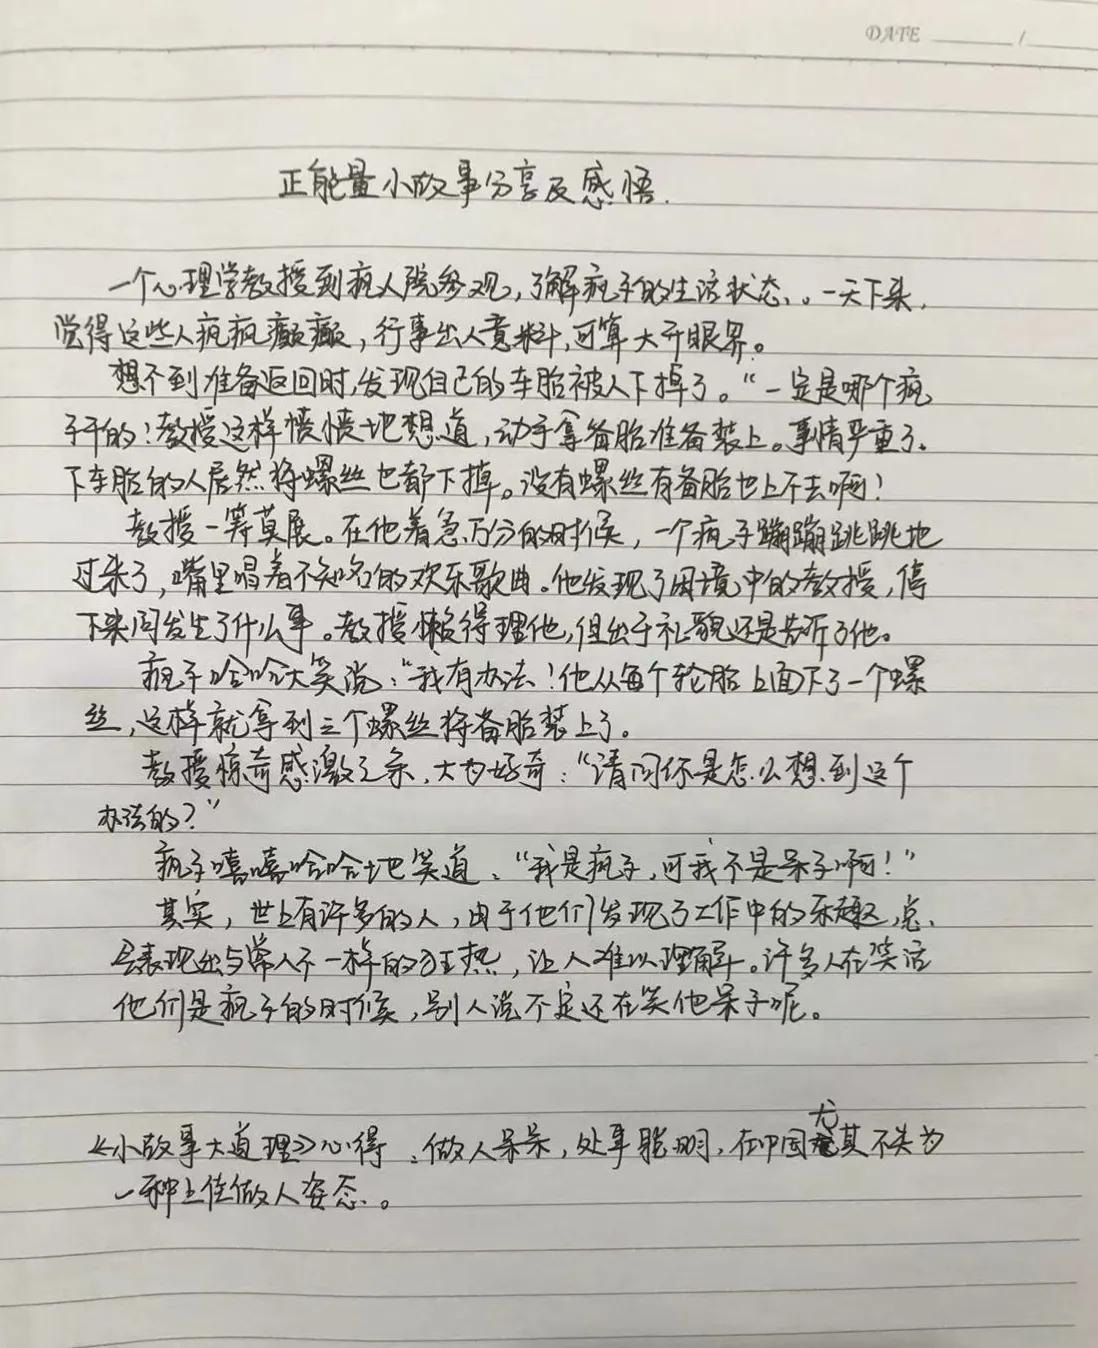 DATE ______ /
正能量小故事分享及感悟.
一个心理学教授到疯人院参观,了解疯子的生活状态、。一天下来,
觉得这些人疯疯癫癫,行事出人意料,可算大开眼界。
想不到准备返回时,发现自己的车胎被人下掉了。“一定是哪个疯
子干的!教授这样愤愤地想道,动手拿备胎准备装上。事情严重了、
下车胎的人居然将螺丝也都下掉。没有螺丝有备胎也上不去啊!
教授一筹莫展。在他着急万分的时候,一个疯子蹦蹦跳跳地
过来了,嘴里唱着不知名的欢乐歌曲。他发现了困境中的教授,停
下来问发生了什么事。教授懒得理他,但出于礼貌还是告诉了他。
疯子哈哈大笑说:“我有办法!他从每个轮胎上面下了一个螺
丝,这样就拿到三个螺丝将备胎装上了。
教授惊奇感激之余,大为好奇:“请问你是怎么想到这个
办法的?”
疯子嘻嘻哈哈地笑道:“我是疯子,可我不是呆子啊!”
其实,世上有许多的人,由于他们发现了工作中的乐趣,总、
会表现出与常人不一样的狂热,让人难以理解。许多人在笑话
他们是疯子的时候,别人说不定还在笑他呆子呢。
《小故事大道理》心得:做人呆呆,处事聪明,在中国尤其不失为
一种上佳做人姿态。